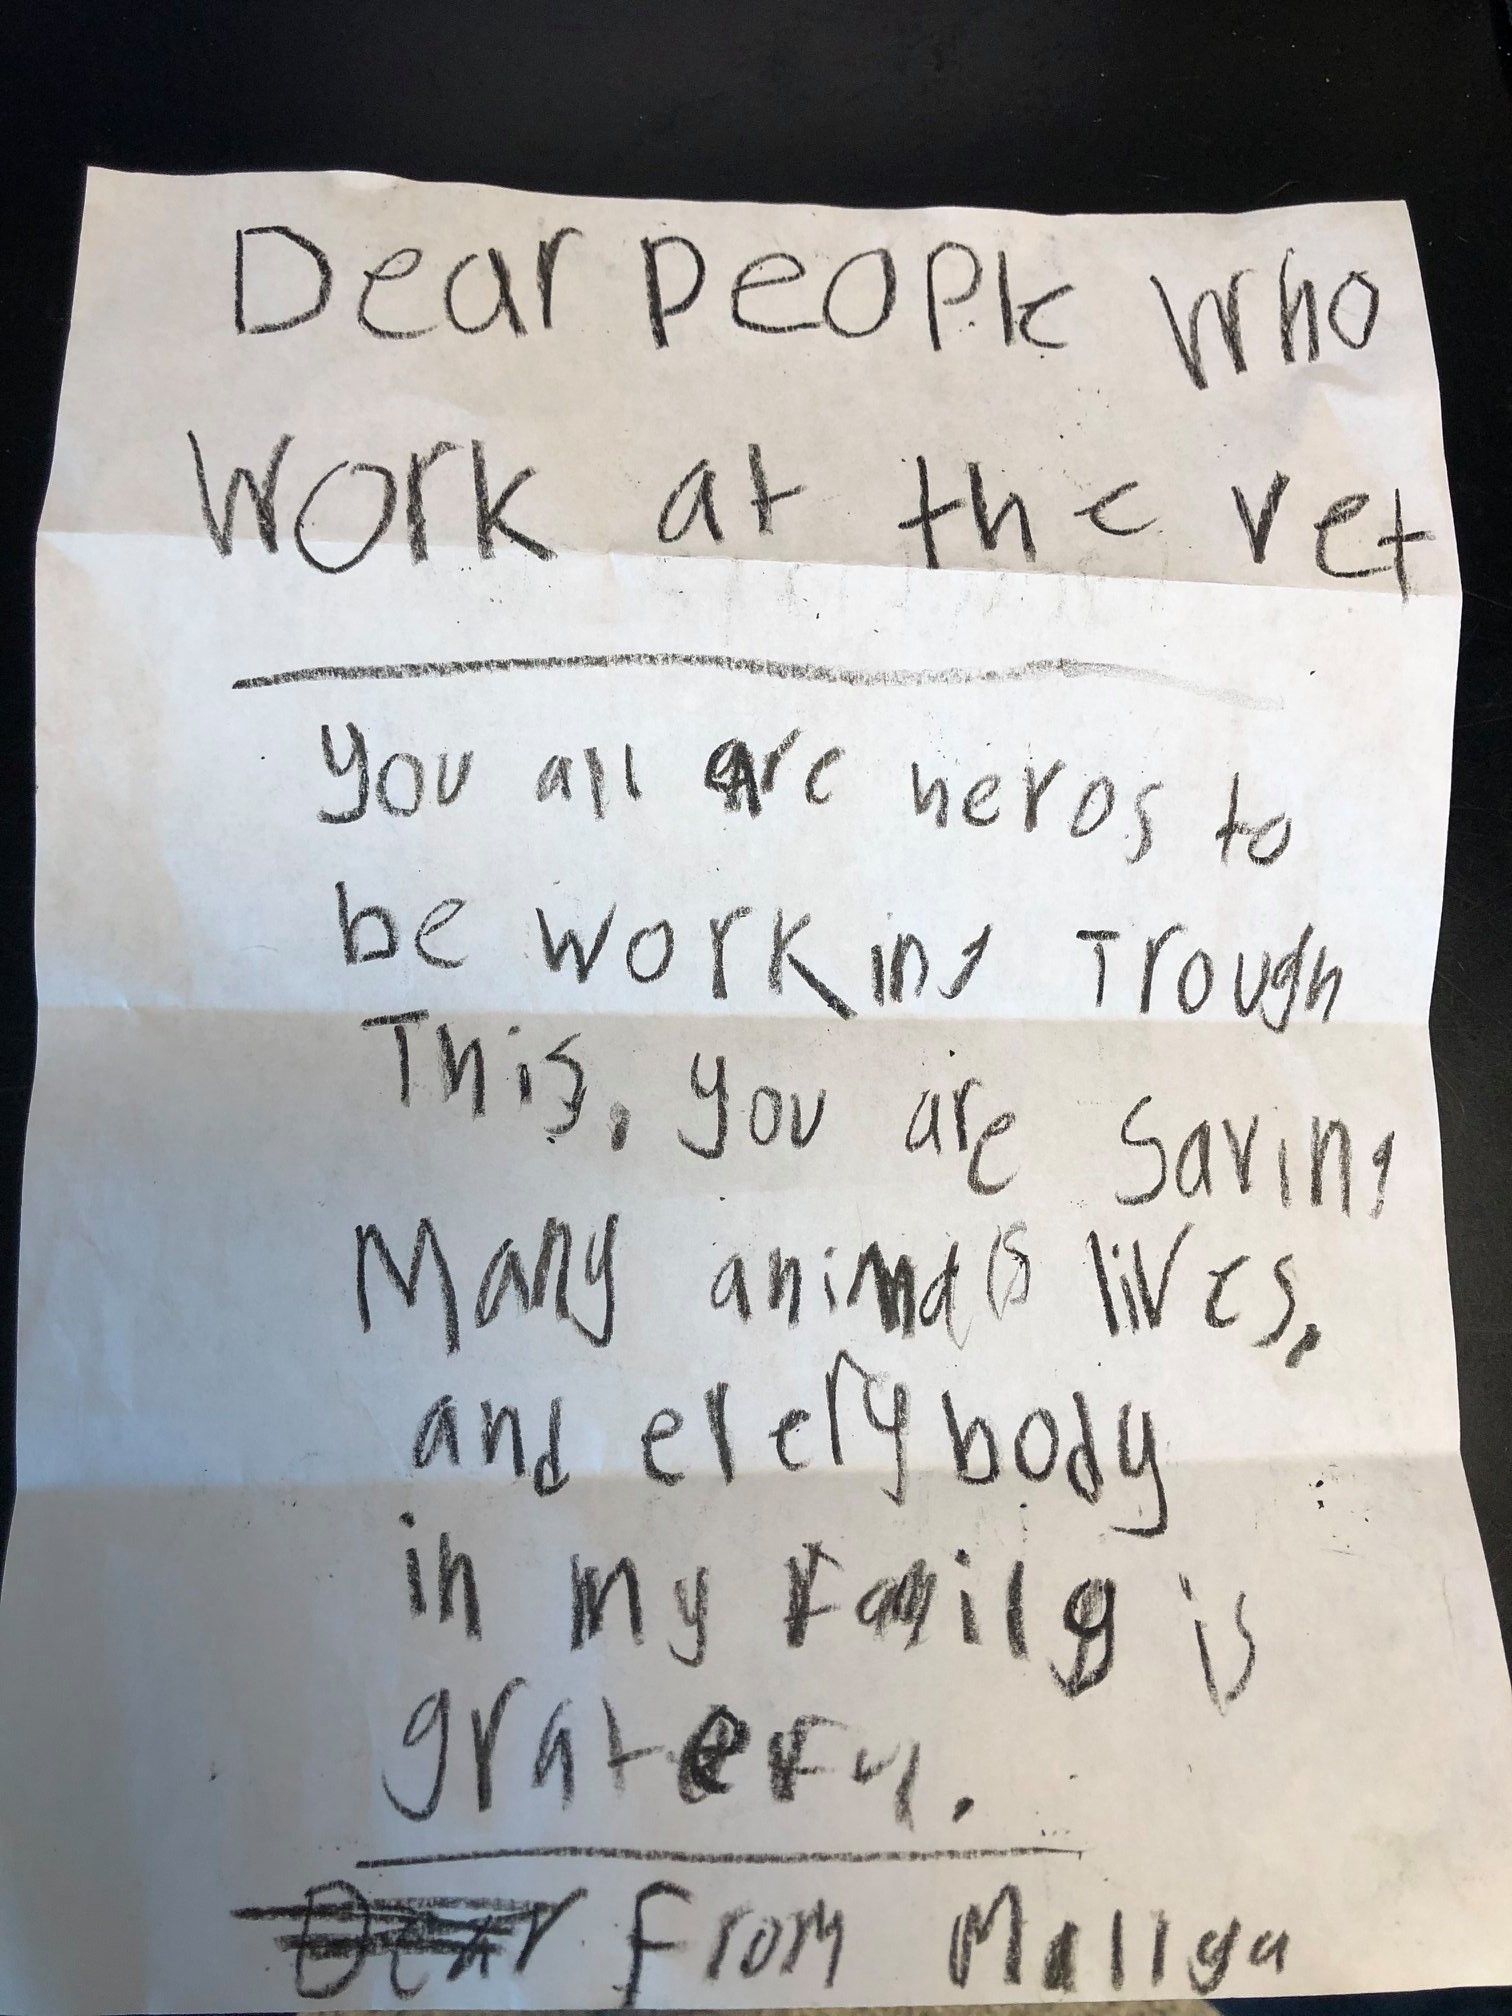 Dear people who
work at the vet
you all are heros to
be working Trough
This. you are Saving
Many animals lives,
and everybody
in my Family is
grateful.
Dear From